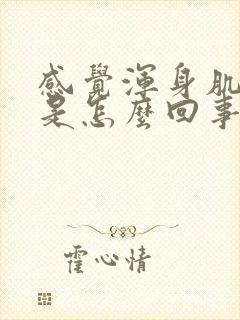 感覺渾身肌
是怎麼回事
霍心情